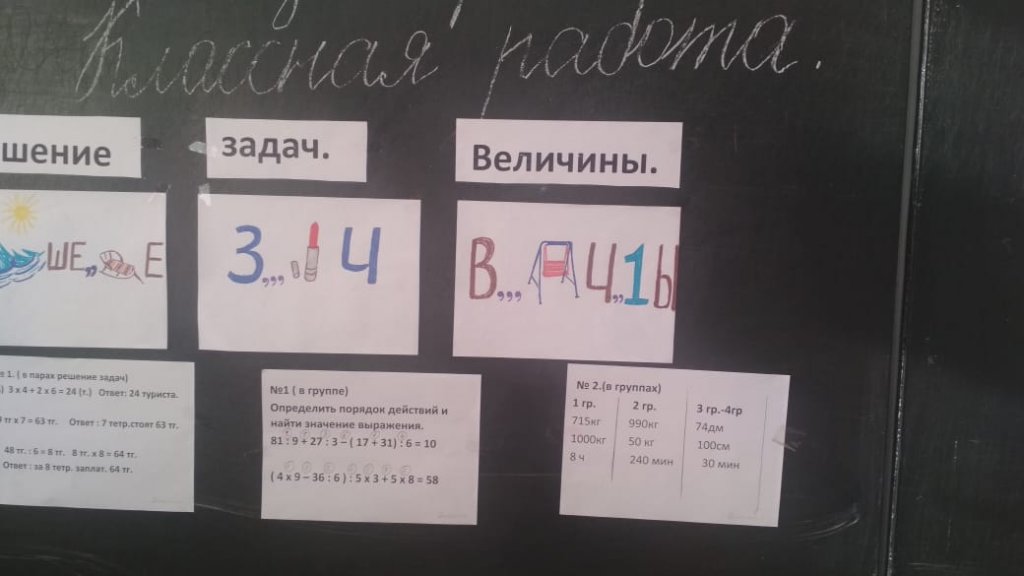 Классная работа.
шение
задач.
Величины.
ШЕ,, Е
З,,, Ч
В,,, Ч,,1Ы
№ 1. ( в парах решение задач)
) 3 х 4 + 2 х 6 = 24 (т.) Ответ: 24 туриста.
9 тг х 7 = 63 тг. Ответ : 7 тетр.стоят 63 тг.
48 тг. : 6 = 8 тг. 8 тг. х 8 = 64 тг.
Ответ : за 8 тетр. заплат. 64 тг.
№1 ( в группе)
Определить порядок действий и
найти значение выражения.
81 : 9 + 27 : 3 – ( 17 + 31) : 6 = 10
( 4 х 9 – 36 : 6 ) : 5 х 3 + 5 х 8 = 58
№ 2.(в группах)
1 гр. 2 гр. 3 гр.-4гр
715кг 990кг 74дм
1000кг 50 кг 100см
8 ч 240 мин 30 мин